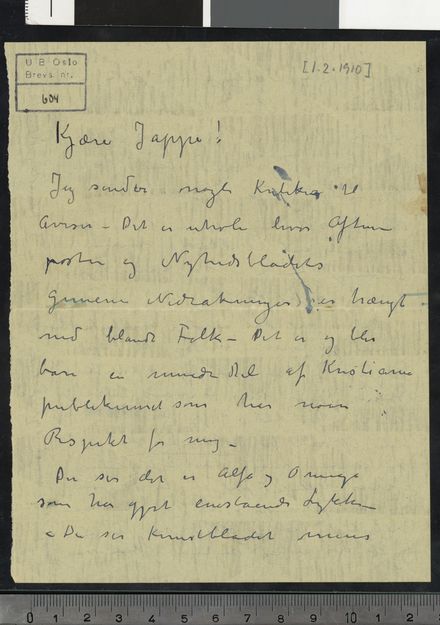 U B Oslo
Brevs. nr.
604
[1.2.1910]
Kjære Jappe!
Jeg sender nogle Kritikker til
Aviser – Det er utrolig hvor Aften
posten og Nyhedsbladets
gemene Nedrakninger har trængt
ned blandt Folk – Det er og blir
bare en mindre del af Kristiania
publikumet som har noen
Respekt for mig –
Du ser det er Alfa og Omega
som har gjort enestaaende Lykke –
– Du ser Kunstbladet mens
0 1 2 3 4 5 6 7 8 9 10 1 2